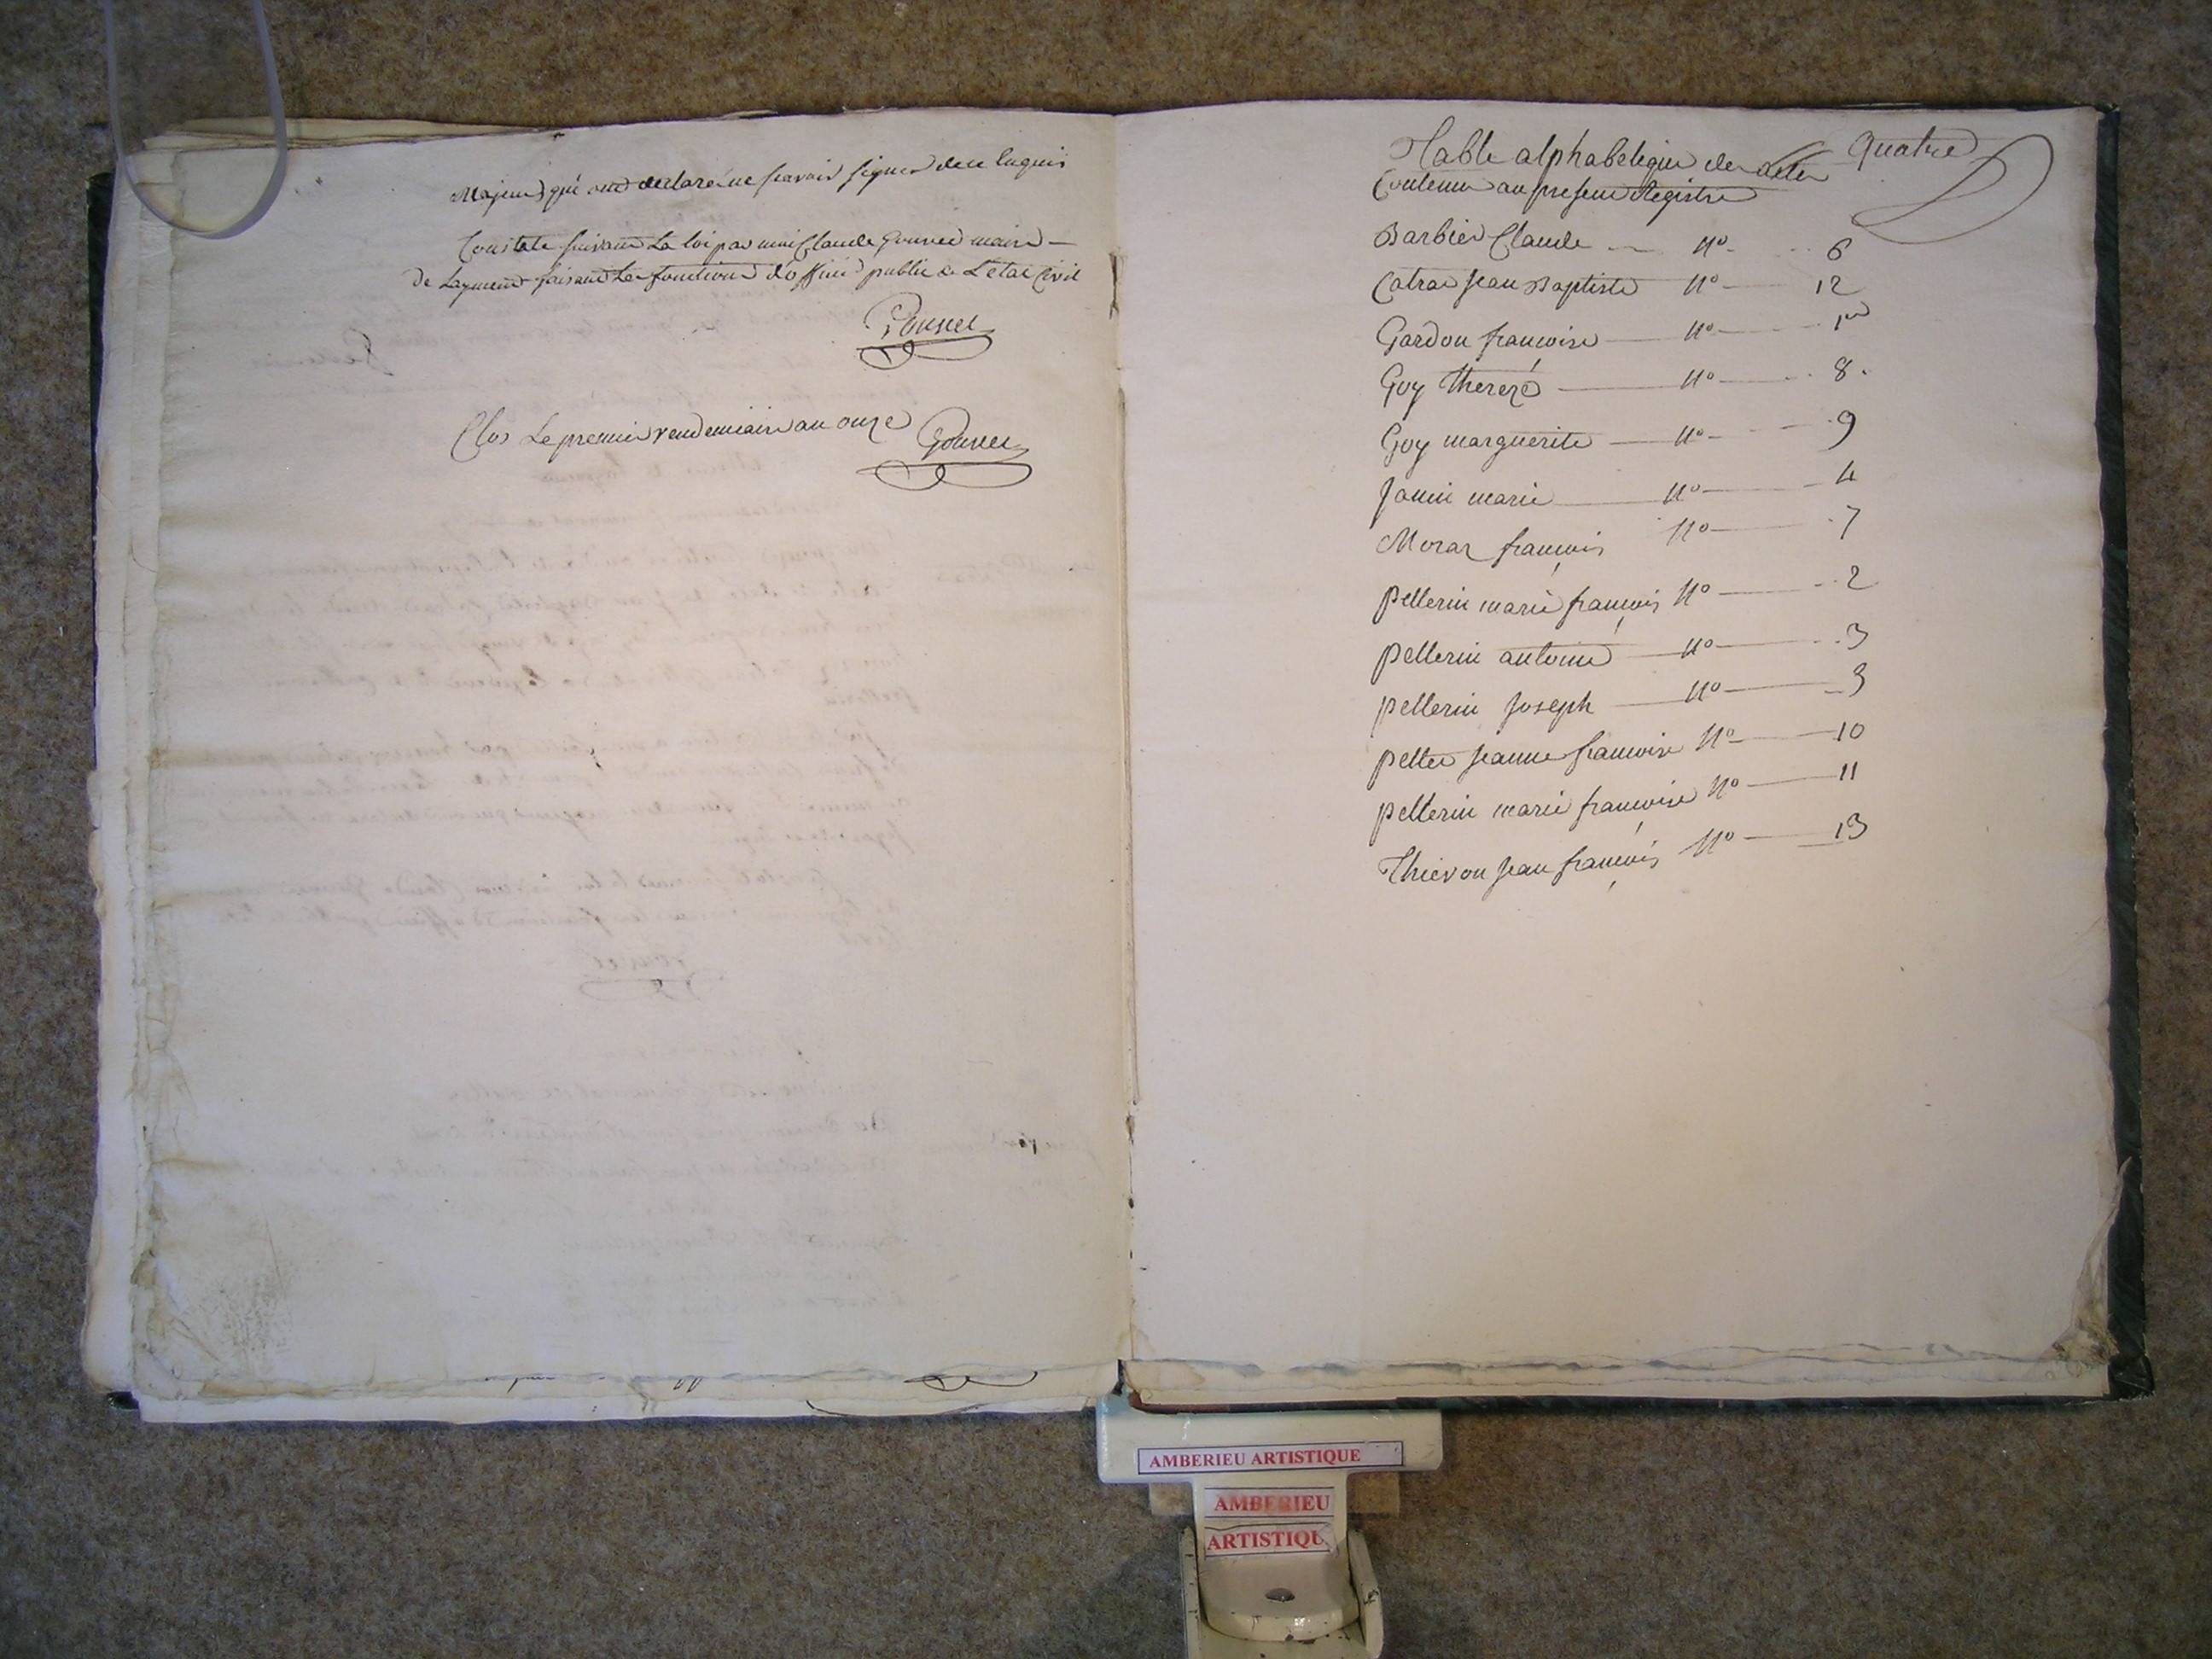 Majeurs qui ont declaré ne scavoir signer de ce enquis
Constaté suivant La loi par moi Claude Gouvet maire
de Layment faisant Les fonctions d'officier public de L'etat Civil
Gouvet
Clos Le premier vendemiaire an onze Gouvet
Table alphabetique des actes
Quatre
Contenus au present Registre
Barbier Claude N° 6
Catrat Jean Baptiste N° 12
Gardon francoise N° 1er
Guy Thereze N° 8.
Guy marguerite N° 9
Janin marie N° 4
Moraz françois N° 7
pellerin marie françois N° 2
pellerin antoine N° 3
pellerin Joseph N° 3
pellet Jeanne francoise N° 10
pellerin marie françoise N° 11
Thievon Jean françois N° 13
AMBERIEU ARTISTIQUE
AMBERIEU
ARTISTIQU